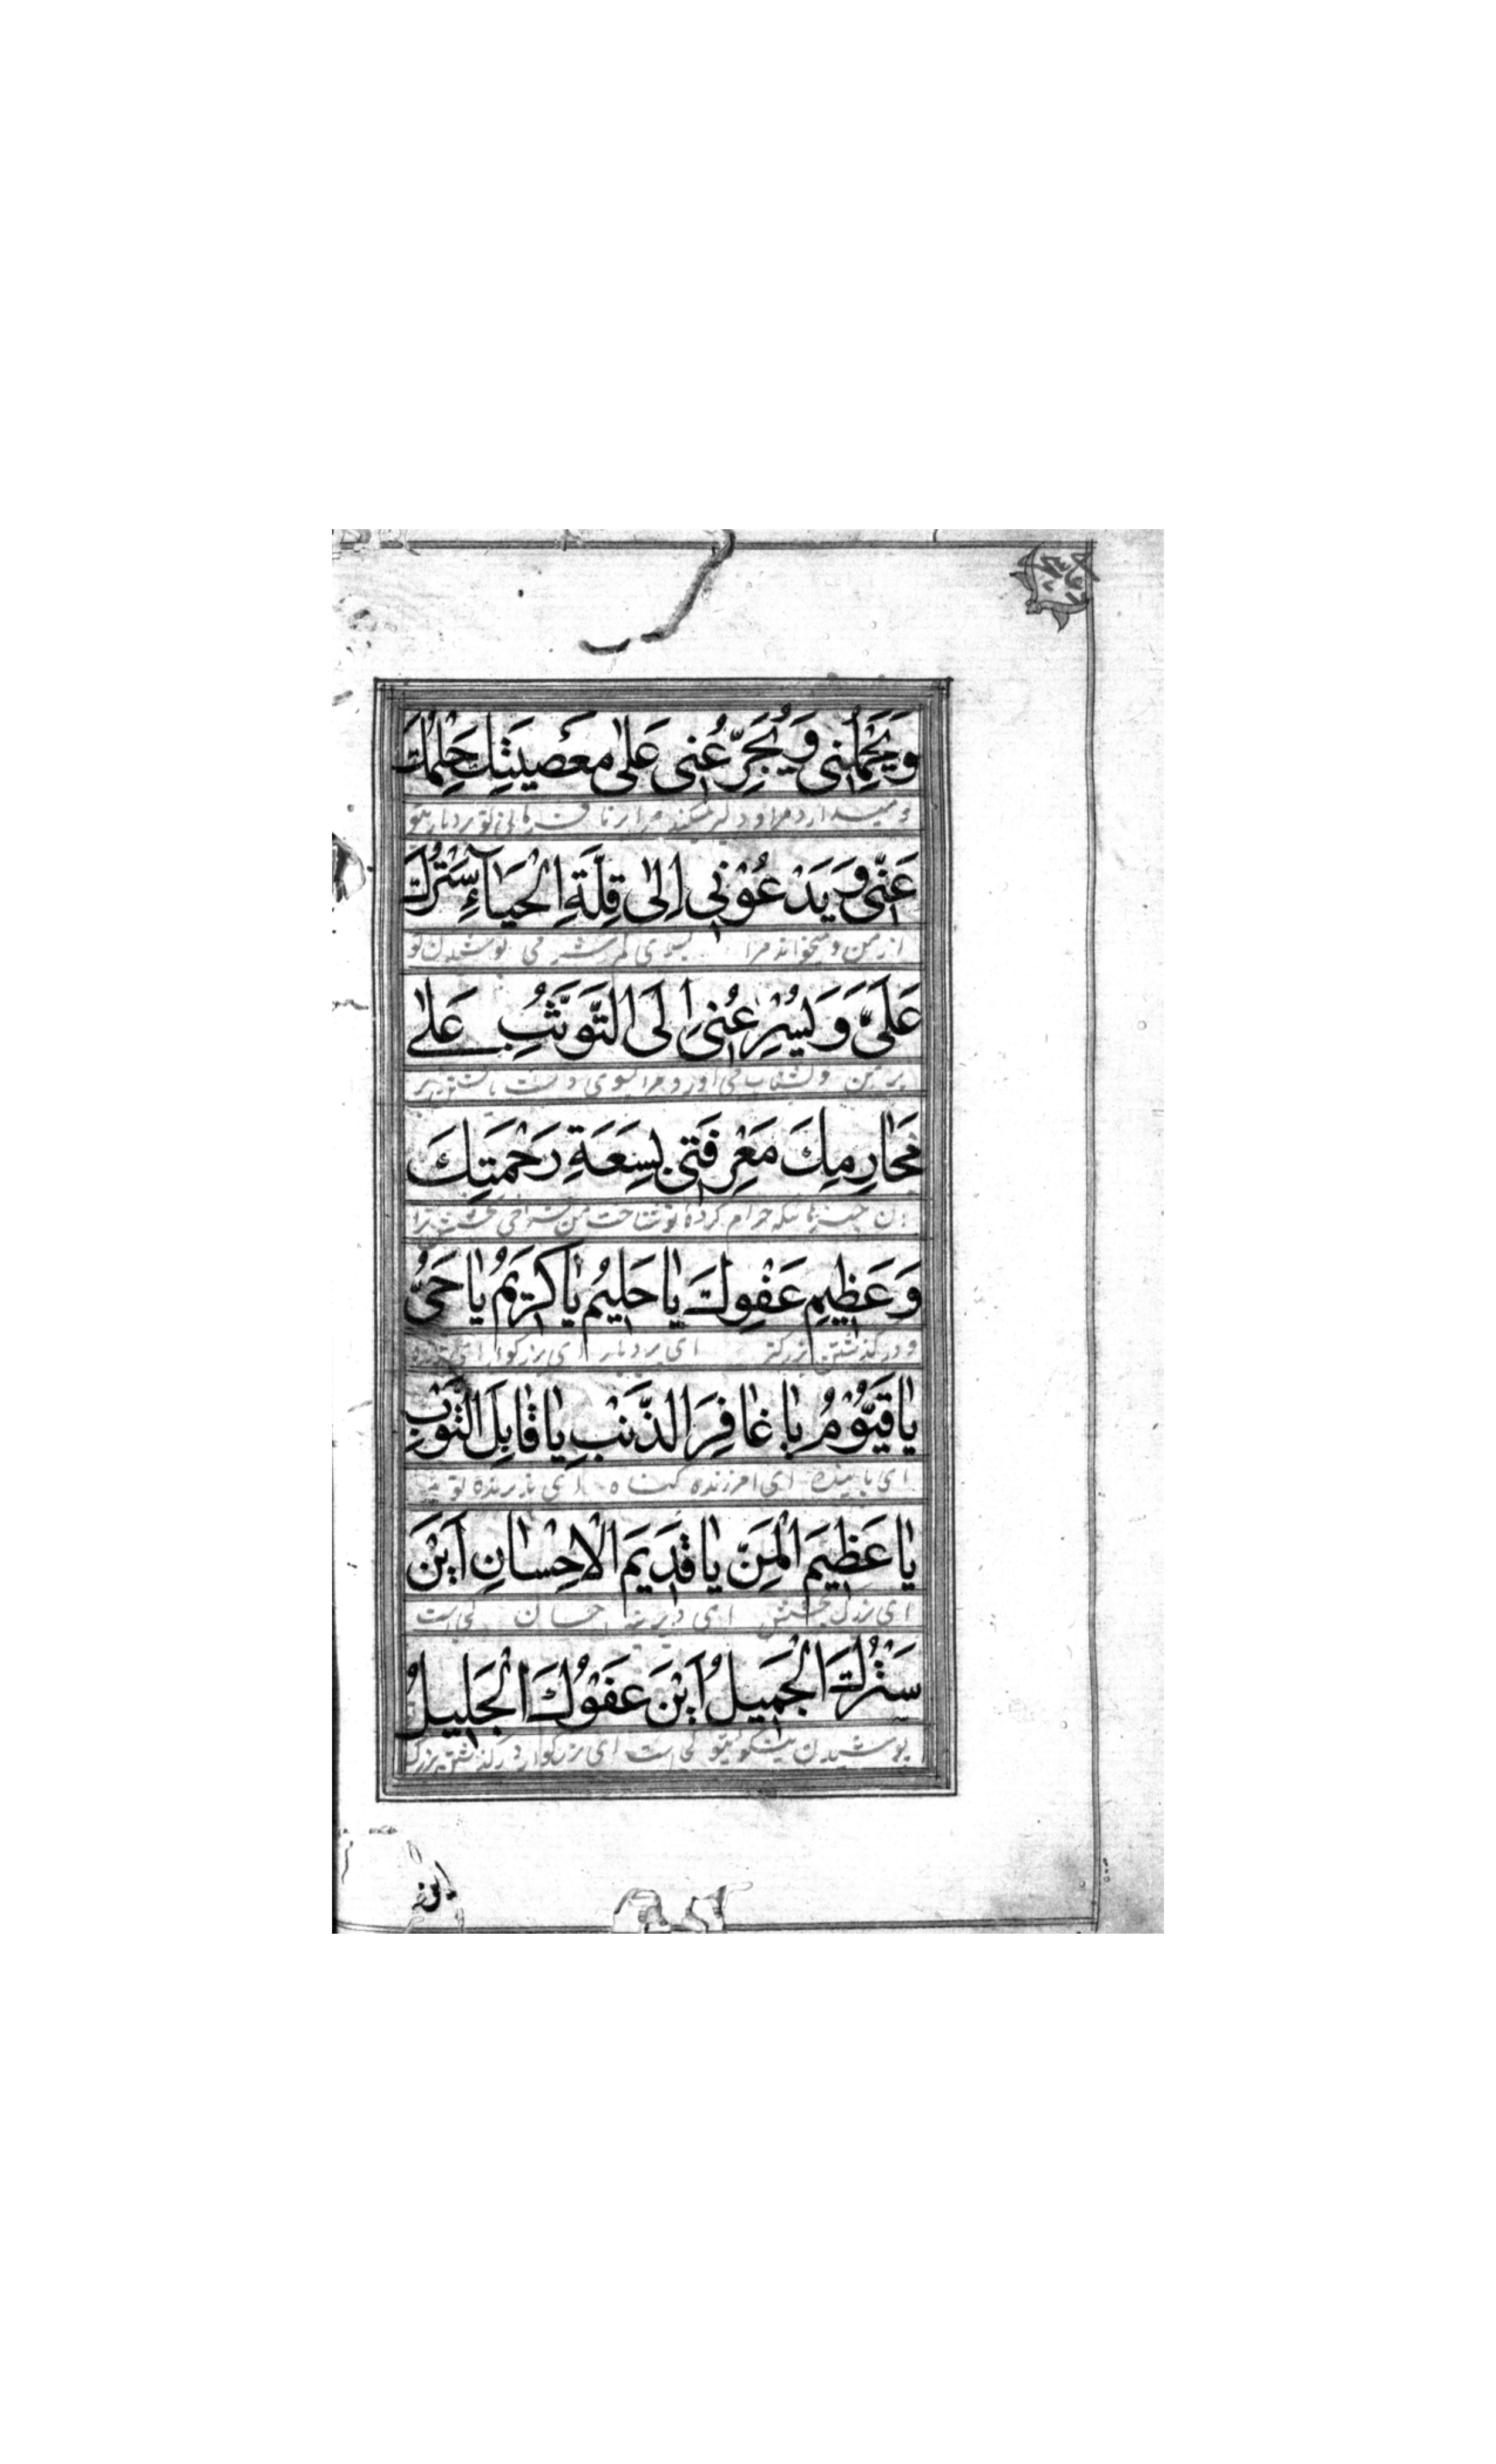 وَيَحْمِلُنِى وَيُجَرِّءُنِى عَلىٰ مَعْصِيَتِكَ حِلْمُكَ
و میدارد مرا و دلیر میکند مرا بر نافرمانی تو بردباری تو
عَنّى وَيَدْعُوْنِى اِلىٰ قِلَّةِ الْحَيَآءِ سَتْرُكَ
از من و میخواند مرا بسوی کم شرمی پوشیدن تو
عَلَىَّ وَيُسْرِعُنِى اِلَى التَّوَثُّبِ عَلىٰ
بر من و بشتاب می آورد مرا بسوی
مَحَارِمِكَ مَعْرِفَتِى بِسَعَةِ رَحْمَتِكَ
حرام کرده تو شناخت من فراخی بخشش ترا
وَعَظِيمِ عَفْوِكَ يَا حَلِيُم يَا كَرَيمُ يَا حَىُّ
و در گذشتن بزرگتر ای بردبار ای بزرگوار ای
يَا قَيُّوْمُ يَا غَافِرَ الذَّنْبِ يَا قَابِلَ التَّوْبِ
ای پاینده ای امرزنده گناه ای پذیرنده توبه
يَا عَظِيمَ الْمَنِّ يَا قَدِيَم الْاِحْسَانِ اَيْنَ
ای بزرگ بخشش ای دیرینه احسان کجاست
سَتْرُكَ الْجَمِيلُ اَيْنَ عَفْوُكَ الْجَلِيلُ
پوشیدن نیکوئیتو کجاست ای بزرگوار در گذشتن بزرگ